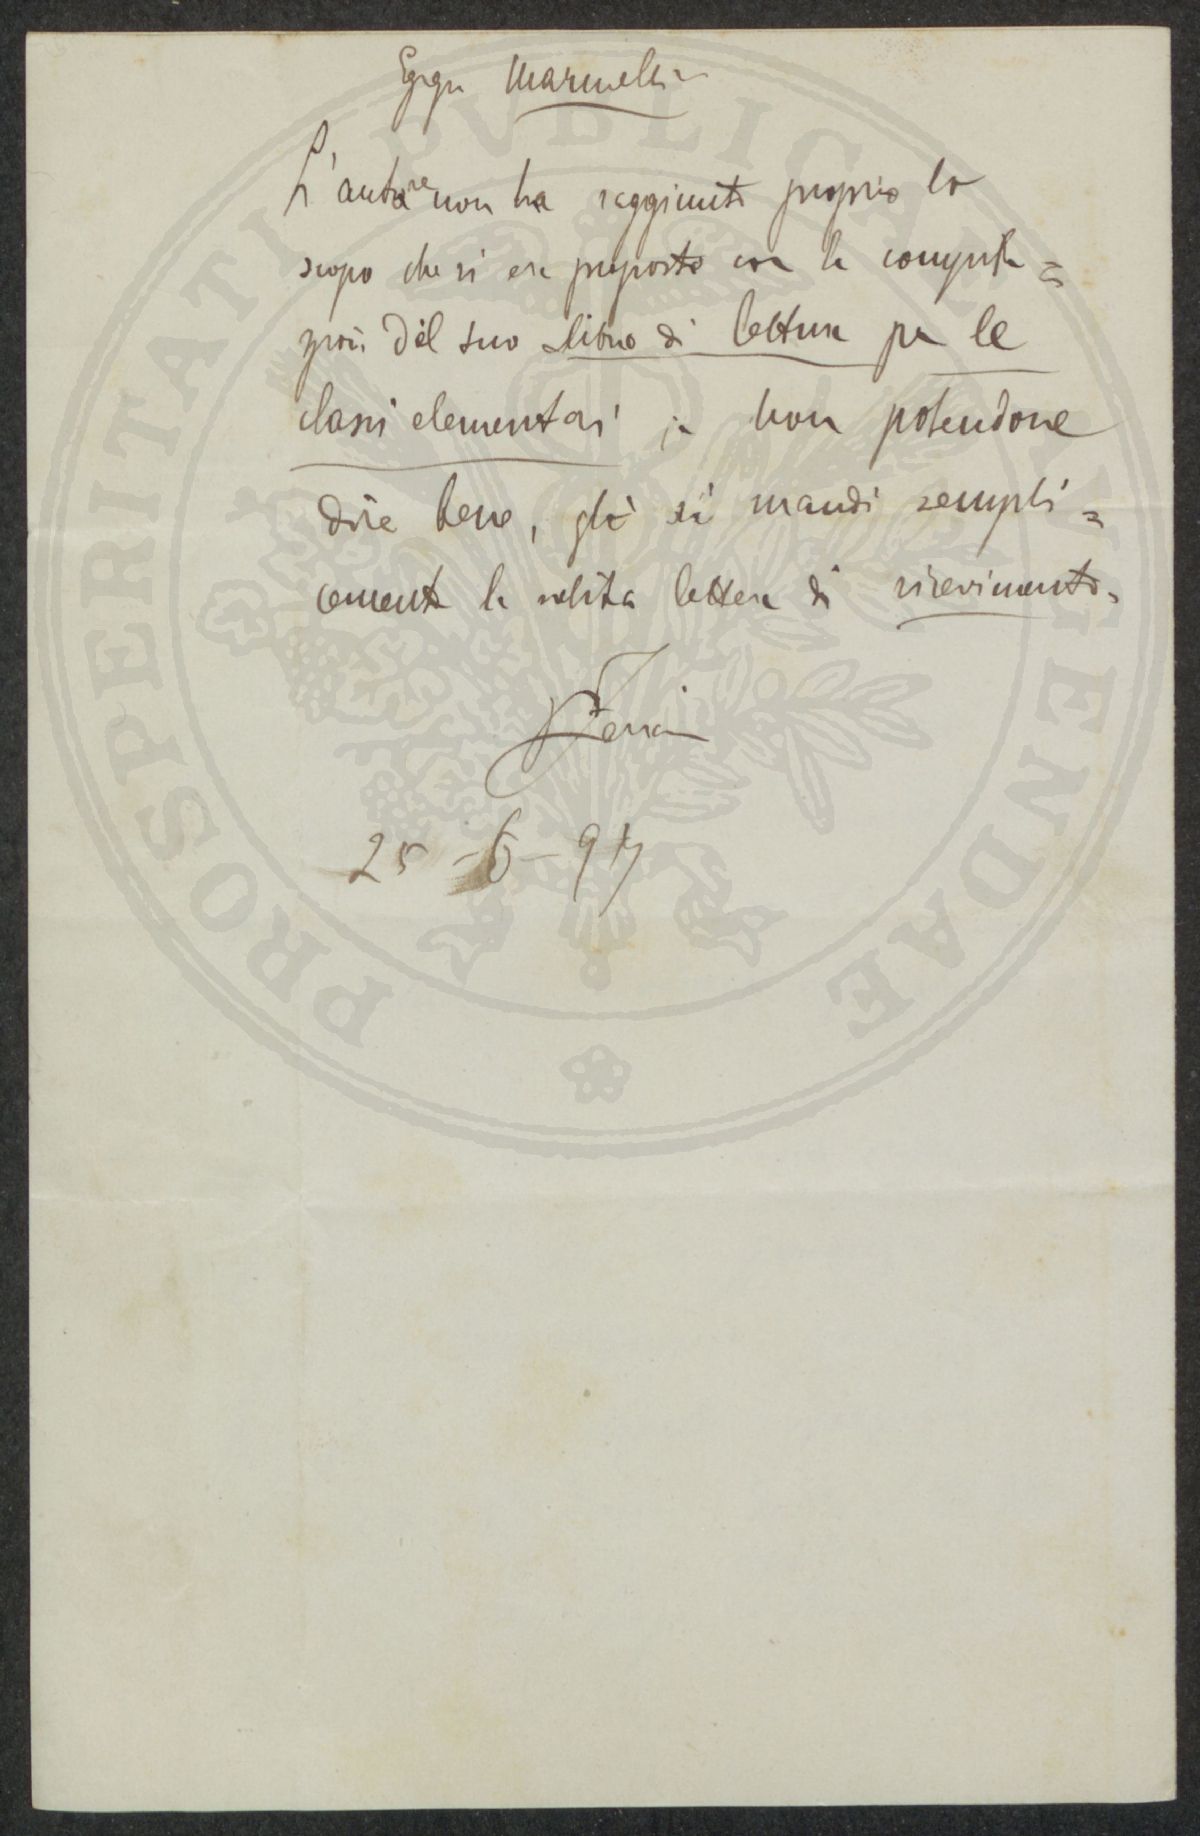 L'autore non ha raggiunto proprio lo
scopo che si era proposto con la compila=
zione del suo libro di lettura per le
classi elementari; non potendone
dire bene, gli si mandi sempli=
cemente la solita lettera di ricevimento.
25-6-97
PROSPERITATI PVBLICAE AVGENDAE